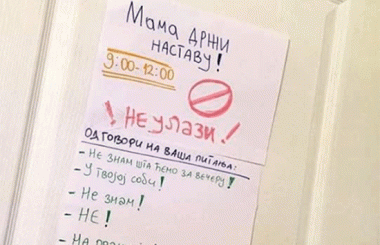 Мама држи
наставу!
9:00-12:00
! НЕ улази!
ОДГОВОРИ НА ВАША ПИТАЊА:
- НЕ ЗНАМ ШТА ЋЕМО ЗА ВЕЧЕРУ!
- У ТВОЈОЈ СОБИ!
- Не знам!
- НЕ!
- НА